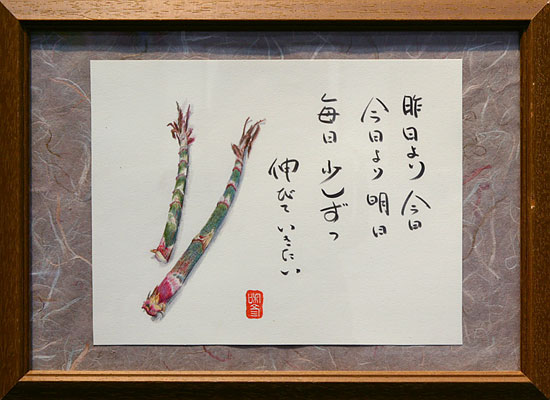 昨日より 今日
今日より 明日
毎日 少しずつ
伸びて いきたい